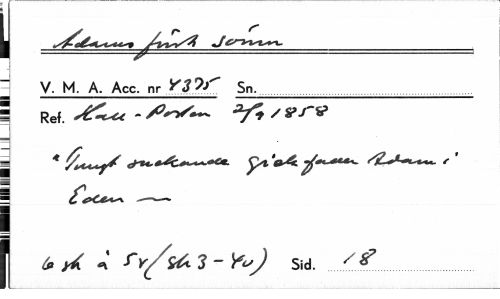 Adams första sömn
V. M. A. Acc. nr 4375 Sn.
Ref. Hall-Posten 2/9 1858
"Tungt suckande gick fader Adam i
Eden —
6 sh à 5r (sh 3-4v) Sid. 18